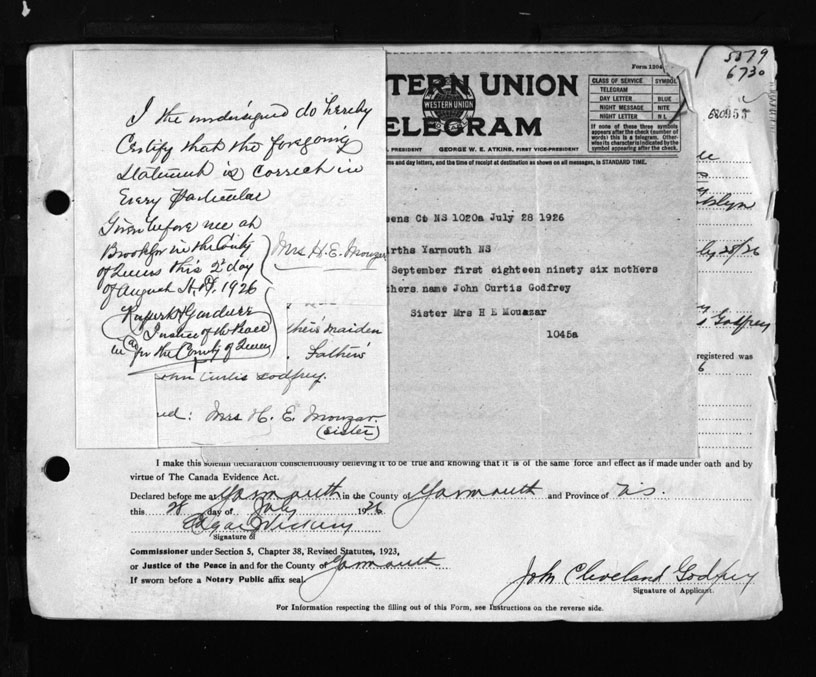 5579
6730
680955
Form 1204
TERN UNION
WESTERN UNION
ELEGRAM
PRESIDENT GEORGE W. E. ATKINS, FIRST VICE-PRESIDENT
CLASS OF SERVICE SYMBOL
TELEGRAM
DAY LETTER BLUE
NIGHT MESSAGE NITE
NIGHT LETTER N L
If none of these three symbols
appears after the check (number of
words) this is a telegram. Other-
wise its character is indicated by the
symbol appearing after the check.
ms and day letters, and the time of receipt at destination as shown on all messages, is STANDARD TIME.
eens Co NS 1020a July 28 1926
irths Yarmouth NS
September first eighteen ninety six mothers
thers name John Curtis Godfrey
Sister Mrs H E Mouazar
1045a
I the undersigned do hereby
Certify that the foregoing
Statement is Correct in
Every Particular
Given before me at
Brooklyn in the County
of Queens this 2d day
of August A.D. 1926
Rupert H Gardner
Justice of the Peace
in & for the County of Queens
Mrs H. E. Mouzar
ther's maiden
Father's
John Curtis Godfrey.
ed: Mrs H. E. Mouzar.
(Sister)
ly 28/26
Godfrey
registered was
6
I make this solemn declaration conscientiously believing it to be true and knowing that it is of the same force and effect as if made under oath and by
virtue of The Canada Evidence Act.
Declared before me at Yarmouth in the County of Yarmouth and Province of N.S.
this 28 day of July 1926
Edgar Vickery
Signature of
Commissioner under Section 5, Chapter 38, Revised Statutes, 1923,
or Justice of the Peace in and for the County of Yarmouth
If sworn before a Notary Public affix seal.
John Cleveland Godfrey
Signature of Applicant.
For Information respecting the filling out of this Form, see Instructions on the reverse side.